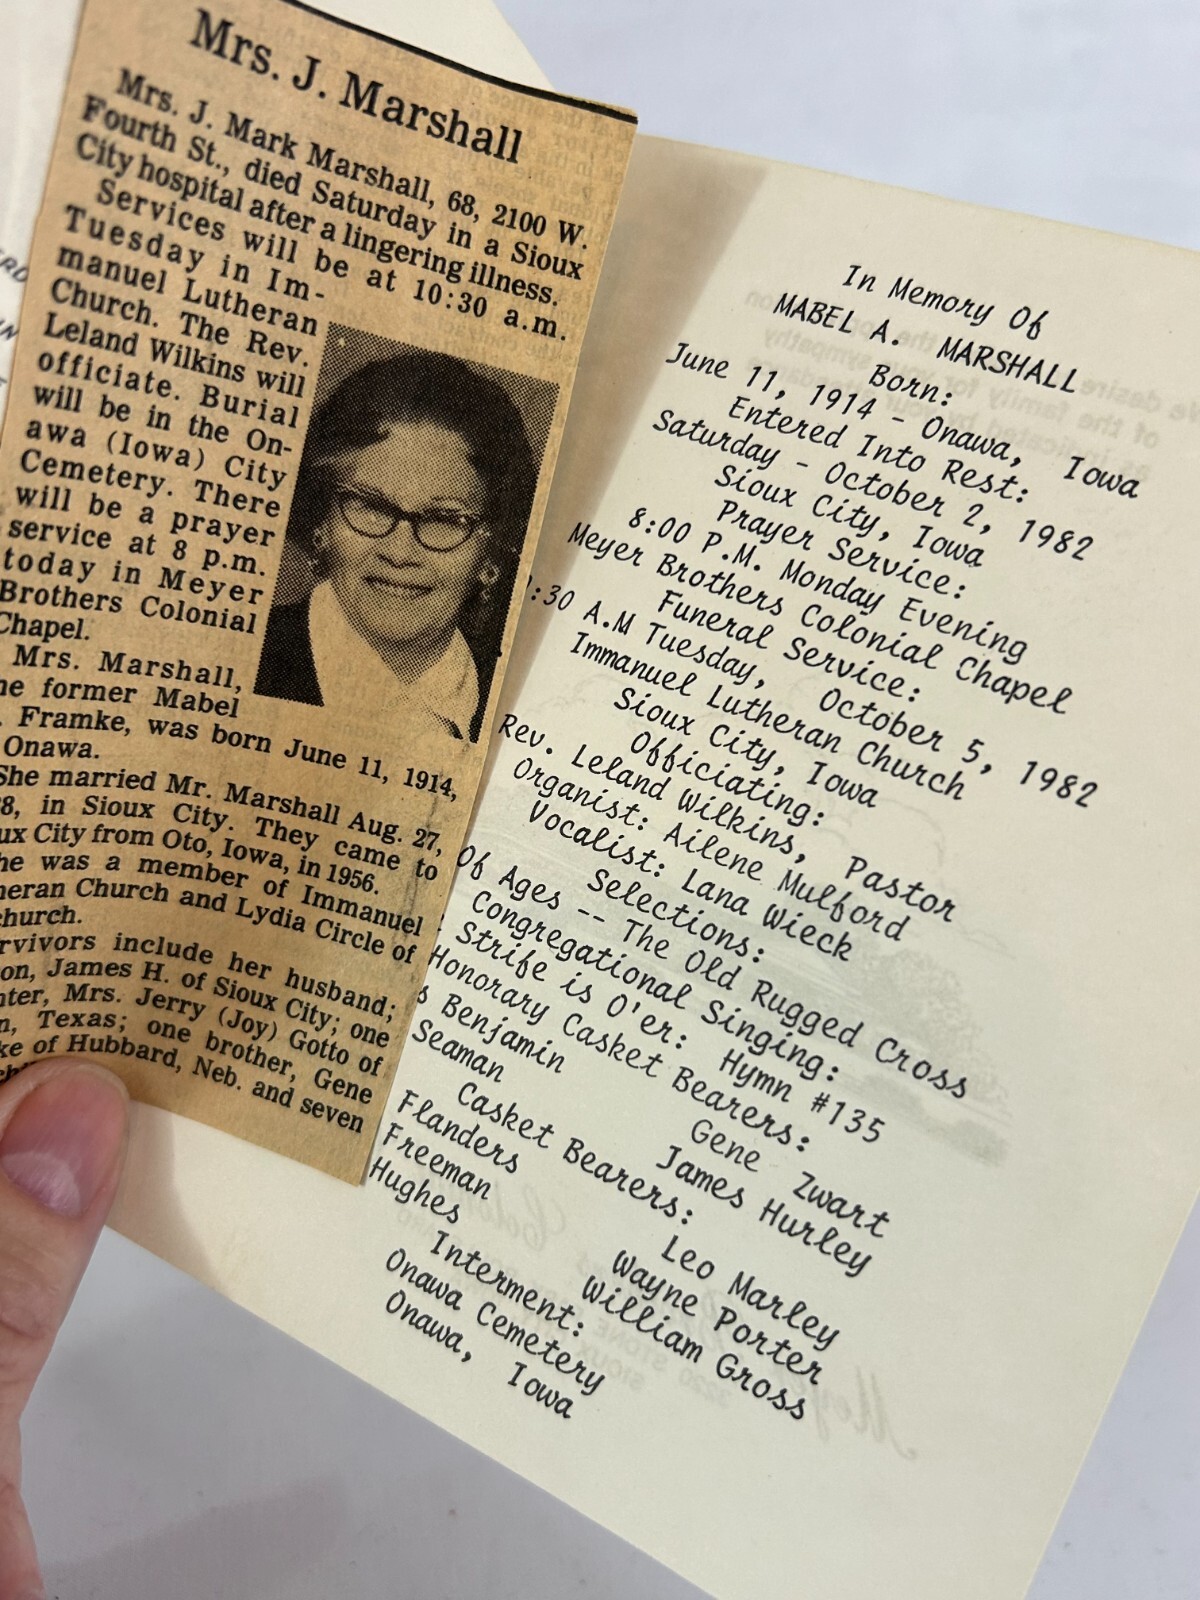 Mrs. J. Marshall
Mrs. J. Mark Marshall, 68, 2100 W.
Fourth St., died Saturday in a Sioux
City hospital after a lingering illness.
Services will be at 10:30 a.m.
Tuesday in Im-
manuel Lutheran
Church. The Rev.
Leland Wilkins will
officiate. Burial
will be in the On-
awa (Iowa) City
Cemetery. There
will be a prayer
service at 8 p.m.
today in Meyer
Brothers Colonial
Chapel.
Mrs. Marshall,
he former Mabel
. Framke, was born June 11, 1914,
Onawa.
She married Mr. Marshall Aug. 27,
8, in Sioux City. They came to
ux City from Oto, Iowa, in 1956.
he was a member of Immanuel
heran Church and Lydia Circle of
church.
rvivors include her husband;
on, James H. of Sioux City; one
hter, Mrs. Jerry (Joy) Gotto of
n, Texas; one brother, Gene
ke of Hubbard, Neb. and seven
In Memory Of
MABEL A. MARSHALL
Born:
June 11, 1914 - Onawa, Iowa
Entered Into Rest:
Saturday - October 2, 1982
Sioux City, Iowa
Prayer Service:
8:00 P.M. Monday Evening
Meyer Brothers Colonial Chapel
Funeral Service:
:30 A.M Tuesday, October 5, 1982
Immanuel Lutheran Church
Sioux City, Iowa
Officiating:
Rev. Leland Wilkins, Pastor
Organist: Ailene Mulford
Vocalist: Lana Wieck
Selections:
Of Ages -- The Old Rugged Cross
Congregational Singing:
Strife is O'er: Hymn #135
Honorary Casket Bearers:
s Benjamin Gene Zwart
Seaman James Hurley
Casket Bearers:
Flanders Leo Marley
Freeman Wayne Porter
Hughes William Gross
Interment:
Onawa Cemetery
Onawa, Iowa